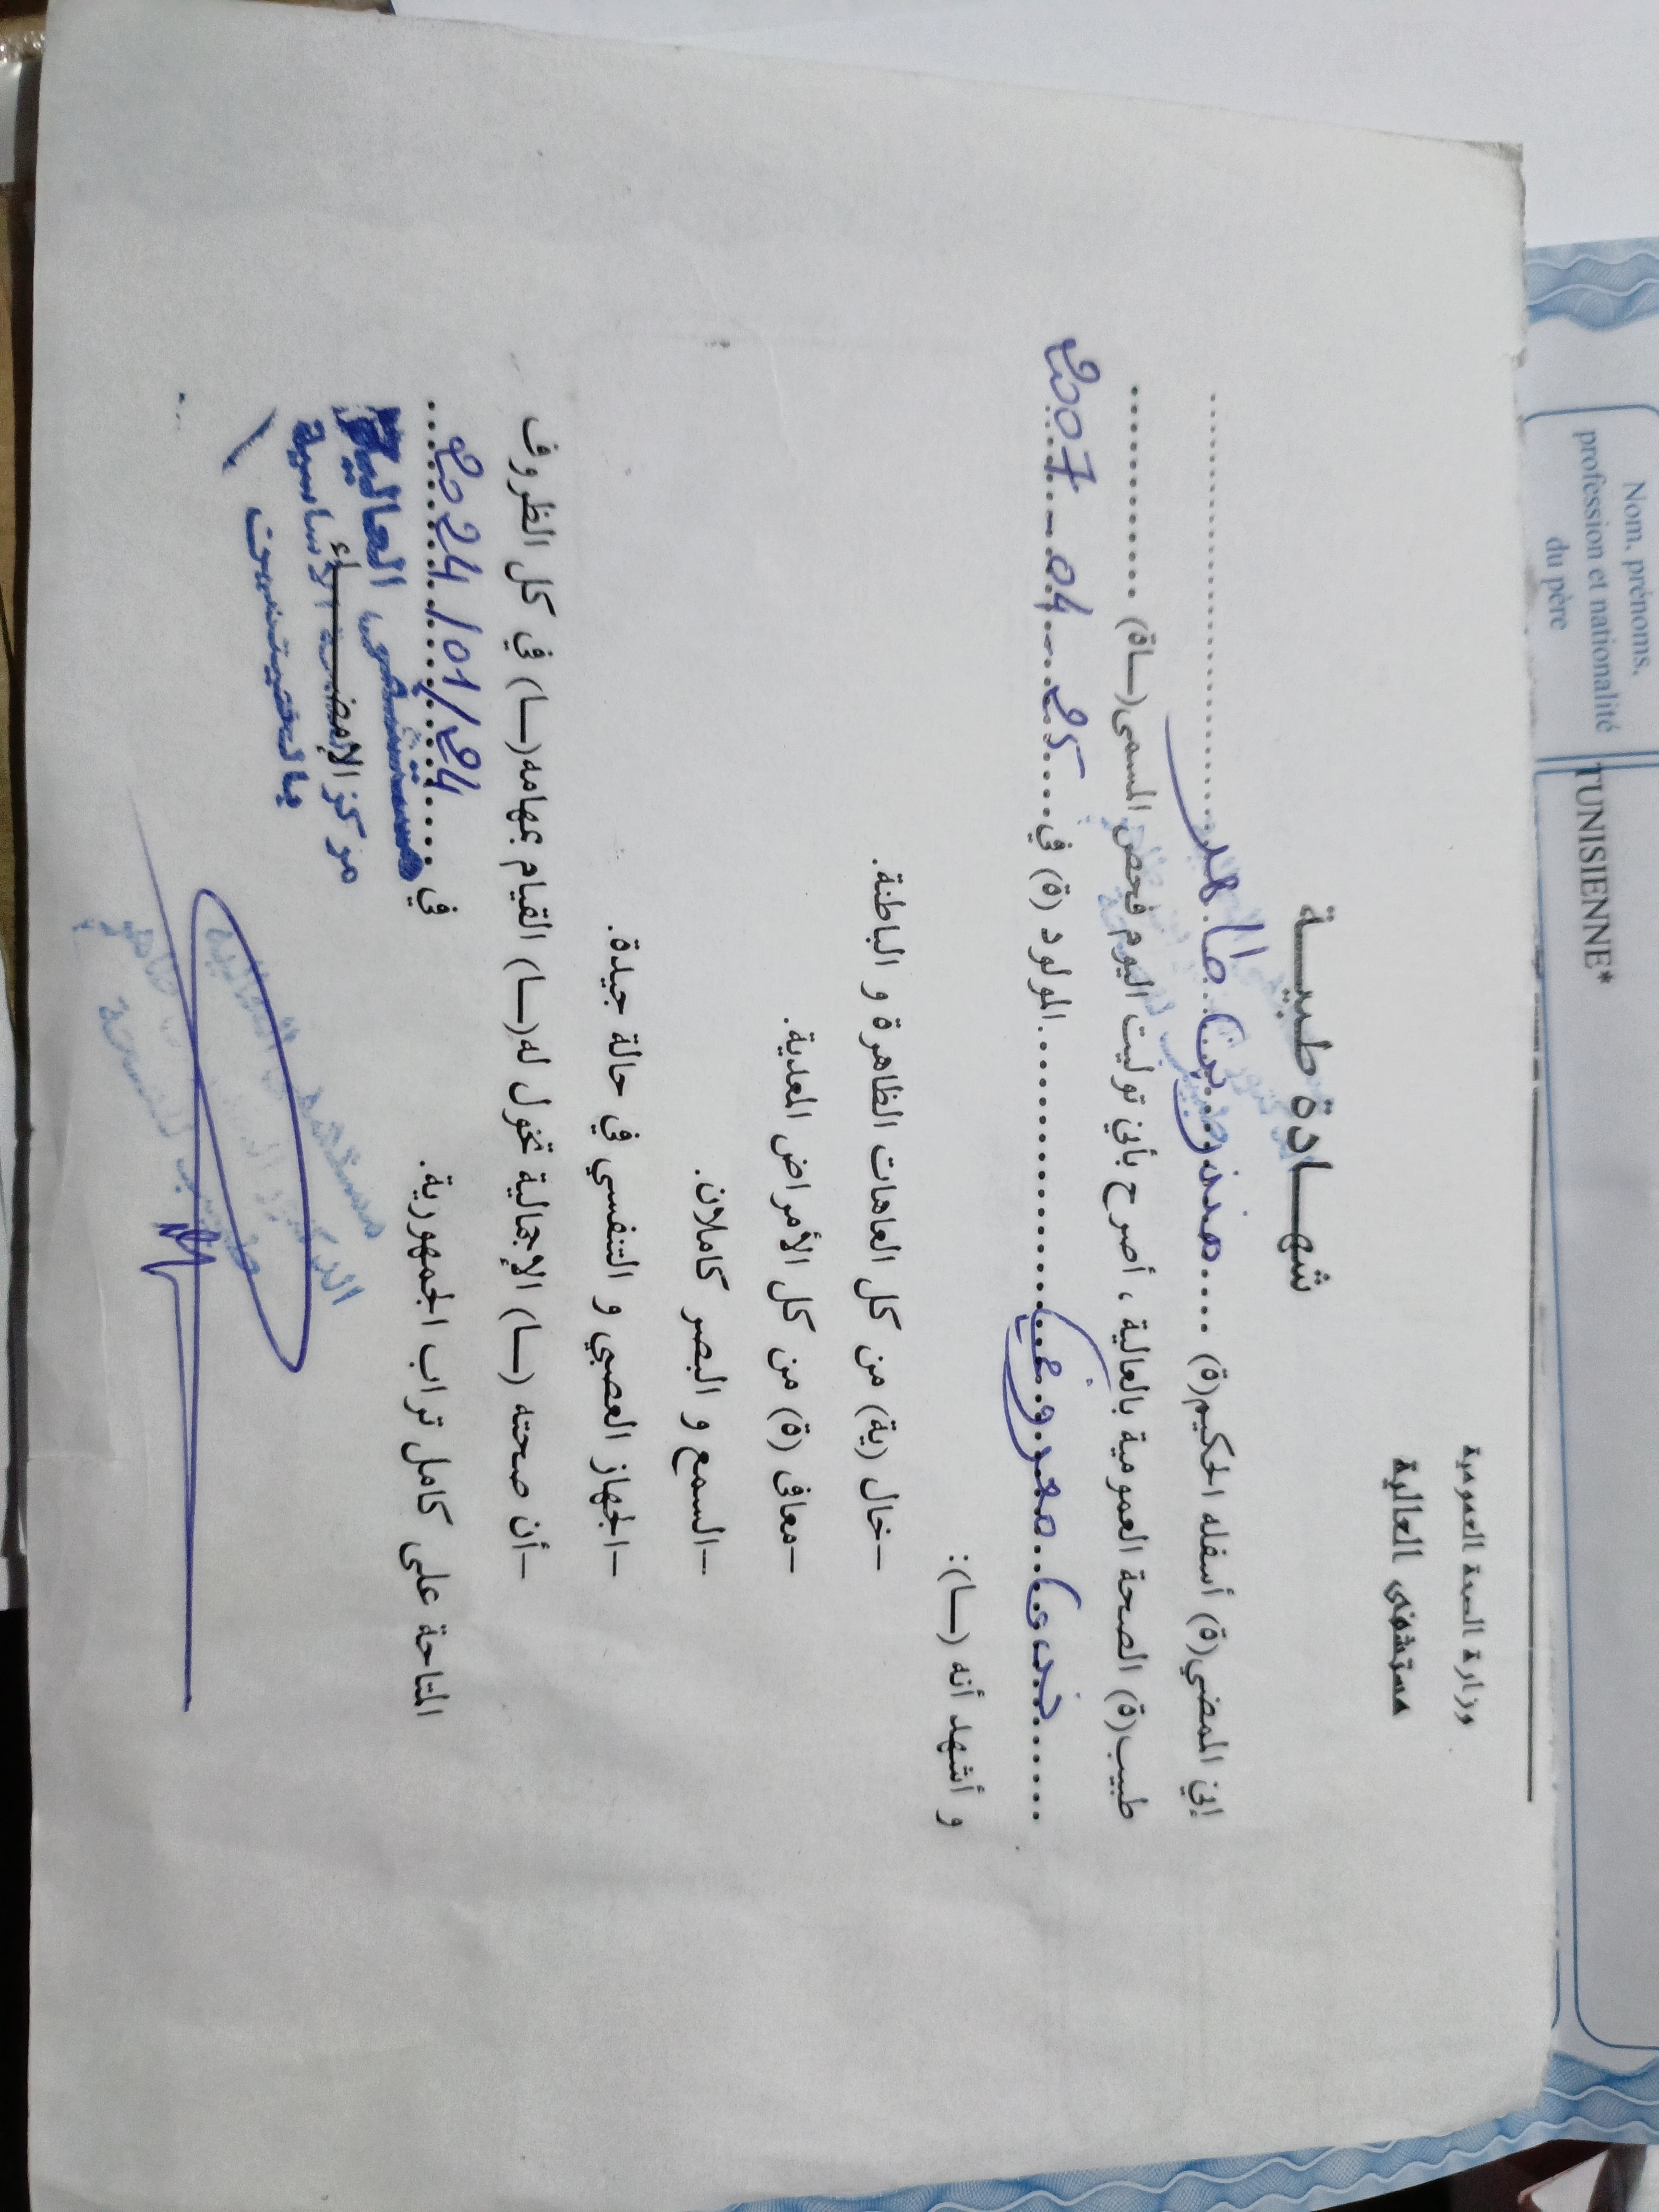 وزارة الصحة العمومية
مستشفى العالية
شهـــادة طبيـــة
إني الممضي(ة) أسفله الحكيم(ة) .... منذر بن طاهر ....
طبيب(ة) الصحة العمومية بالعالية ، أصرح بأني توليت اليوم فحص المسمى(ـاة) ............
...... معروفي ...... المولود (ة) في .... 25 - 04 - 2007
و أشهد أنه (ـا):
-خال (ية) من كل العاهات الظاهرة و الباطنة.
-معافى (ة) من كل الأمراض المعدية.
-السمع و البصر كاملان.
-الجهاز العصبي و التنفسي في حالة جيدة.
-أن صحته (ـا) الإجمالية تخول له(ـا) القيام بمهامه(ـا) في كل الظروف
المتاحة على كامل تراب الجمهورية.
في 24/01/2024
مستشفى العالية
الإمضــاء
مركز الأساسية
Nom, prénoms,
profession et nationalité
du père
TUNISIENNE*